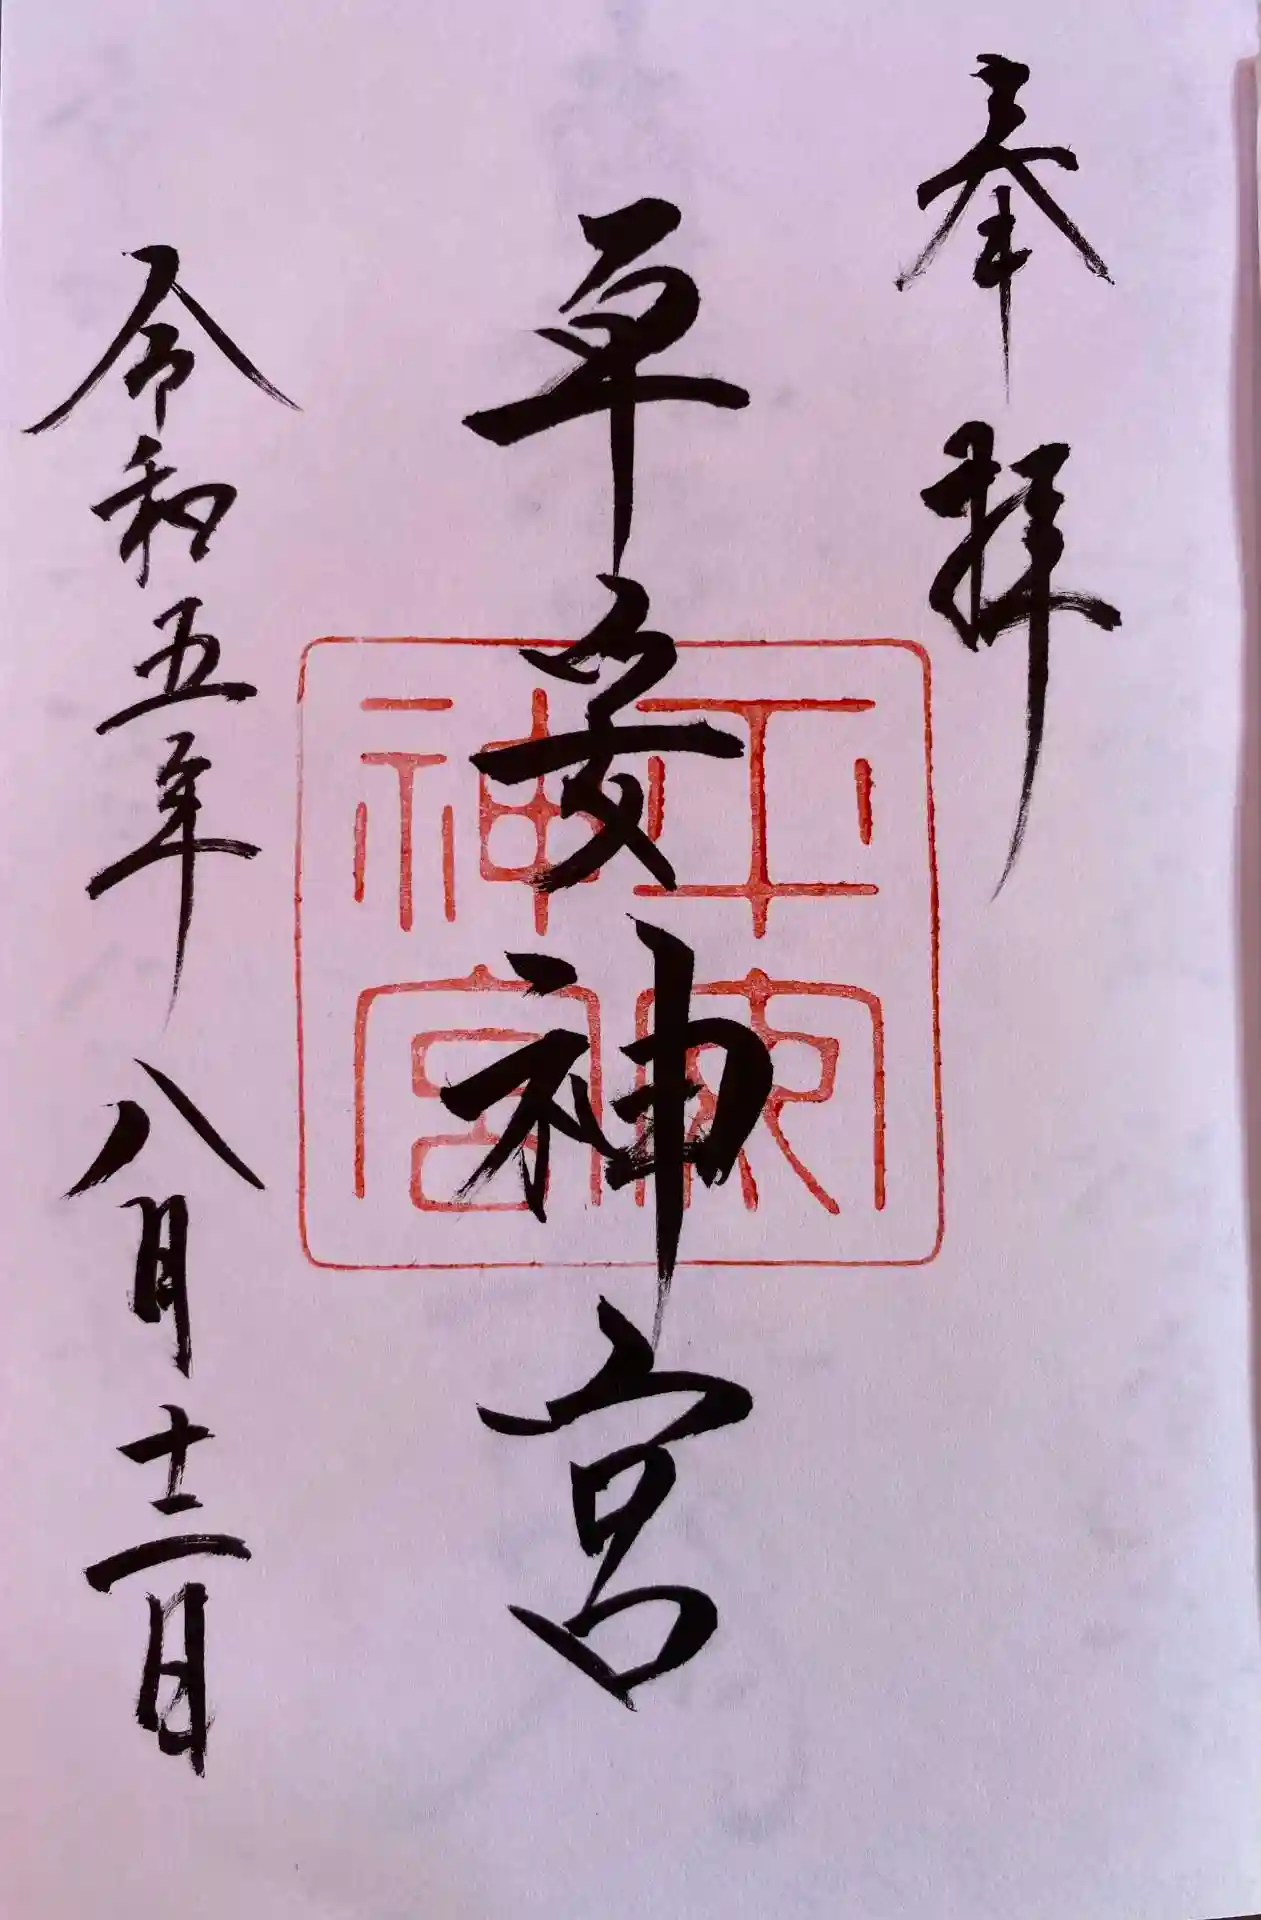 奉拝
平安神宮
令和五年八月十二日
平安
神宮